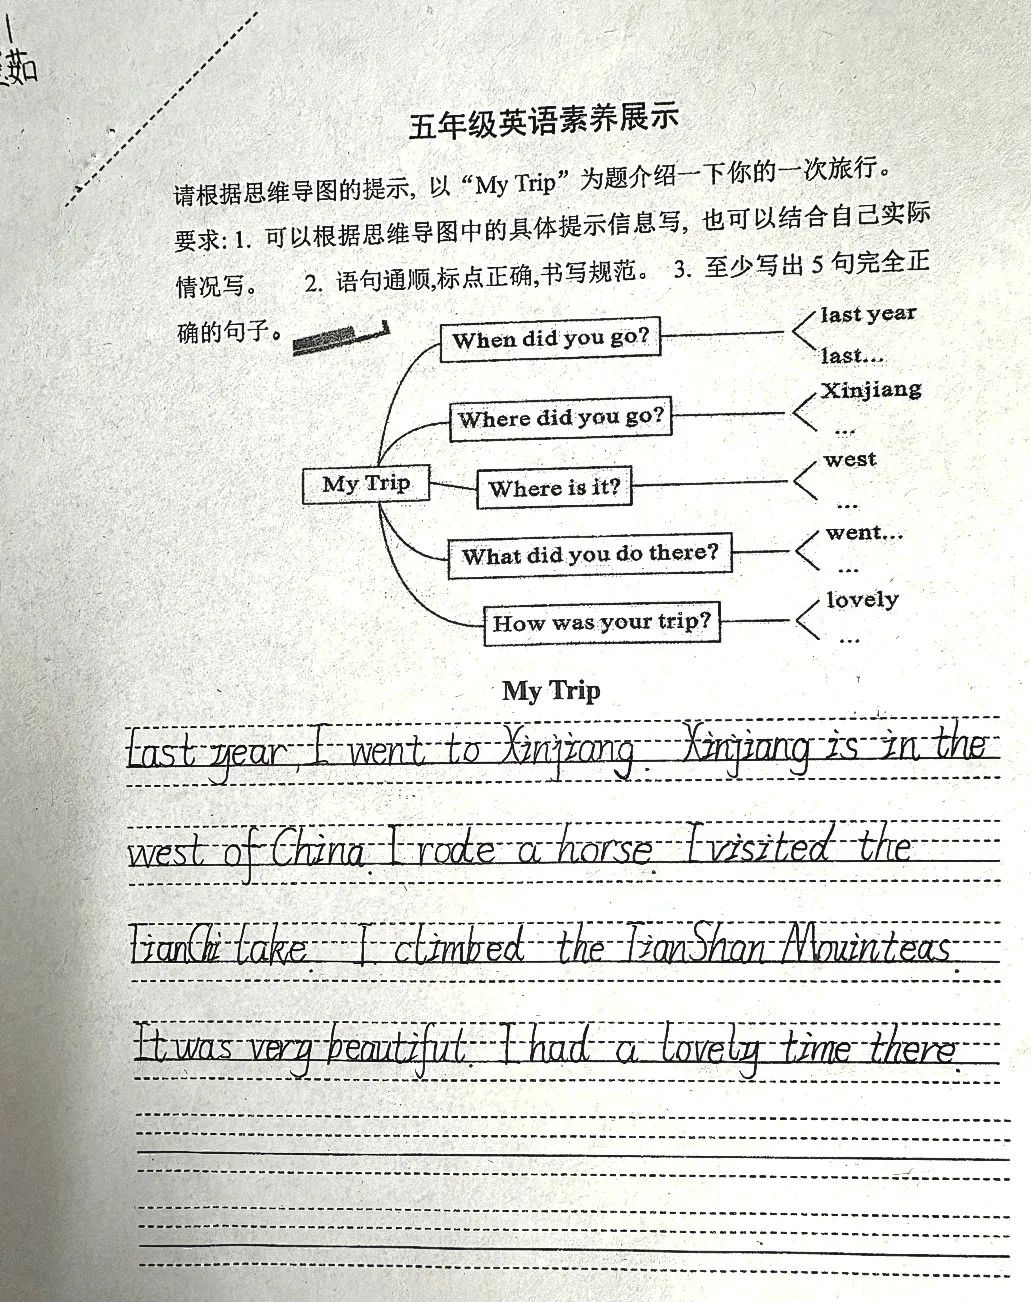 茹
五年级英语素养展示
请根据思维导图的提示, 以“My Trip”为题介绍一下你的一次旅行。
要求: 1. 可以根据思维导图中的具体提示信息写, 也可以结合自己实际
情况写。 2. 语句通顺,标点正确,书写规范。 3. 至少写出 5 句完全正
确的句子。
When did you go?
last year
last...
Where did you go?
Xinjiang
...
My Trip
Where is it?
west
...
What did you do there?
went...
...
How was your trip?
lovely
...
My Trip
Last year, I went to Xinjiang. Xinjiang is in the
west of China. I rode a horse. I visited the
TianChi lake. I climbed the TianShan Mouinteas.
It was very beautiful. I had a lovely time there.